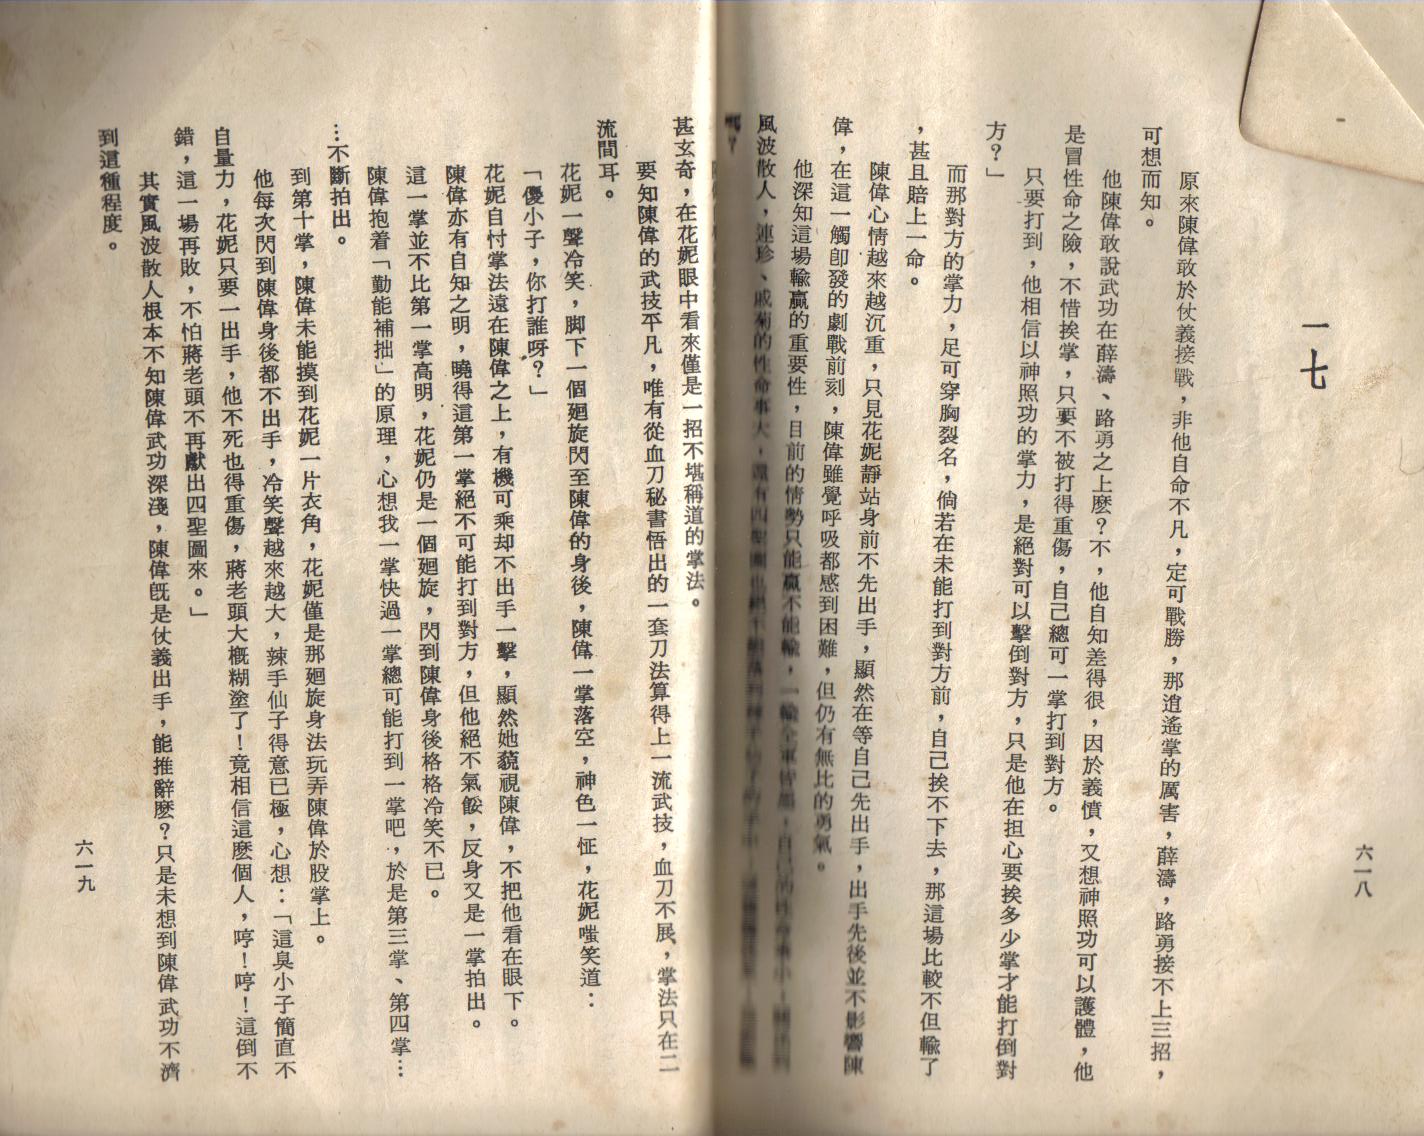 一七
原來陳偉敢於仗義接戰，非他自命不凡，定可戰勝，那逍遙掌的厲害，薛濤，路勇接不上三招，
可想而知。
他陳偉敢說武功在薛濤、路勇之上麽？不，他自知差得很，因於義憤，又想神照功可以護體，他
是冒性命之險，不惜挨掌，只要不被打得重傷，自己總可一掌打到對方。
只要打到，他相信以神照功的掌力，是絕對可以擊倒對方，只是他在担心要挨多少掌才能打倒對
方？」
而那對方的掌力，足可穿胸裂名，倘若在未能打到對方前，自己挨不下去，那這場比較不但輸了
，甚且賠上一命。
陳偉心情越來越沉重，只見花妮靜站身前不先出手，顯然在等自己先出手，出手先後並不影響陳
偉，在這一觸卽發的劇戰前刻，陳偉雖覺呼吸都感到困難，但仍有無比的勇氣。
他深知這場輸贏的重要性，目前的情勢只能贏不能輸，一輸全軍皆墨，自己的性命事小，
風波散人，連珍、戚菊的性命事大，還有四聖圖也絕不
六一八
甚玄奇，在花妮眼中看來僅是一招不堪稱道的掌法。
要知陳偉的武技平凡，唯有從血刀秘書悟出的一套刀法算得上一流武技，血刀不展，掌法只在二
流間耳。
花妮一聲冷笑，脚下一個廻旋閃至陳偉的身後，陳偉一掌落空，神色一怔，花妮嗤笑道：
「傻小子，你打誰呀？」
花妮自忖掌法遠在陳偉之上，有機可乘却不出手一擊，顯然她藐視陳偉，不把他看在眼下。
陳偉亦有自知之明，曉得這第一掌絕不可能打到對方，但他絕不氣餒，反身又是一掌拍出。
這一掌並不比第一掌高明，花妮仍是一個廻旋，閃到陳偉身後格格冷笑不已。
陳偉抱着「勤能補拙」的原理，心想我一掌快過一掌總可能打到一掌吧，於是第三掌、第四掌…
…不斷拍出。
到第十掌，陳偉未能摸到花妮一片衣角，花妮僅是那廻旋身法玩弄陳偉於股掌上。
他每次閃到陳偉身後都不出手，冷笑聲越來越大，辣手仙子得意已極，心想：「這臭小子簡直不
自量力，花妮只要一出手，他不死也得重傷，蔣老頭大槪糊塗了！竟相信這麽個人，哼！哼！這倒不
錯，這一場再敗，不怕蔣老頭不再獻出四聖圖來。」
其實風波散人根本不知陳偉武功深淺，陳偉旣是仗義出手，能推辭麽？只是未想到陳偉武功不濟
到這種程度。
六一九